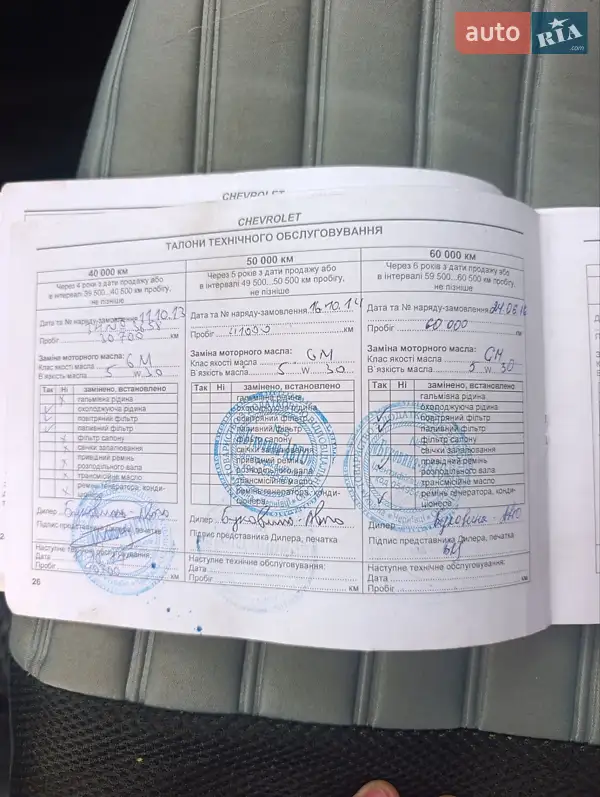 auto RIA .com
CHEVROLET
CHEVROLET
ТАЛОНИ ТЕХНІЧНОГО ОБСЛУГОВУВАННЯ
40 000 км
Через 4 роки з дати продажу або
в інтервалі 39 500...40 500 км пробігу,
не пізніше
Дата та № наряду-замовлення 11.10.13
Пробіг 30 700 км
Заміна моторного масла:
Клас якості масла GM
В'язкість масла 5 w 30
Так Ні замінено, встановлено
гальмівна рідина
охолоджуюча рідина
повітряний фільтр
паливний фільтр
фільтр салону
свічки запалювання
привідний ремінь
розподільного вала
трансмісійне масло
ремінь генератора, конди-
ціонера
Дилер Буковина-Авто
Підпис представника Дилера, печатка
Наступне технічне обслуговування:
Дата
Пробіг км
26
50 000 км
Через 5 років з дати продажу або
в інтервалі 49 500...50 500 км пробігу,
не пізніше
Дата та № наряду-замовлення 16.10.14
Пробіг 41000 км
Заміна моторного масла:
Клас якості масла GM
В'язкість масла 5 w 30
Так Ні замінено, встановлено
гальмівна рідина
охолоджуюча рідина
повітряний фільтр
паливний фільтр
фільтр салону
свічки запалювання
привідний ремінь
розподільного вала
трансмісійне масло
ремінь генератора, конди-
ціонера
Дилер Буковина-Авто
Підпис представника Дилера, печатка
Наступне технічне обслуговування:
Дата
Пробіг км
60 000 км
Через 6 років з дати продажу або
в інтервалі 59 500...60 500 км пробігу,
не пізніше
Дата та № наряду-замовлення
Пробіг 60 000 км
Заміна моторного масла:
Клас якості масла GM
В'язкість масла 5 w 30
Так Ні замінено, встановлено
гальмівна рідина
охолоджуюча рідина
повітряний фільтр
паливний фільтр
фільтр салону
свічки запалювання
привідний ремінь
розподільного вала
трансмісійне масло
ремінь генератора, конди-
ціонера
Дилер Буковина Авто
Підпис представника Дилера, печатка
Наступне технічне обслуговування:
Дата
Пробіг км